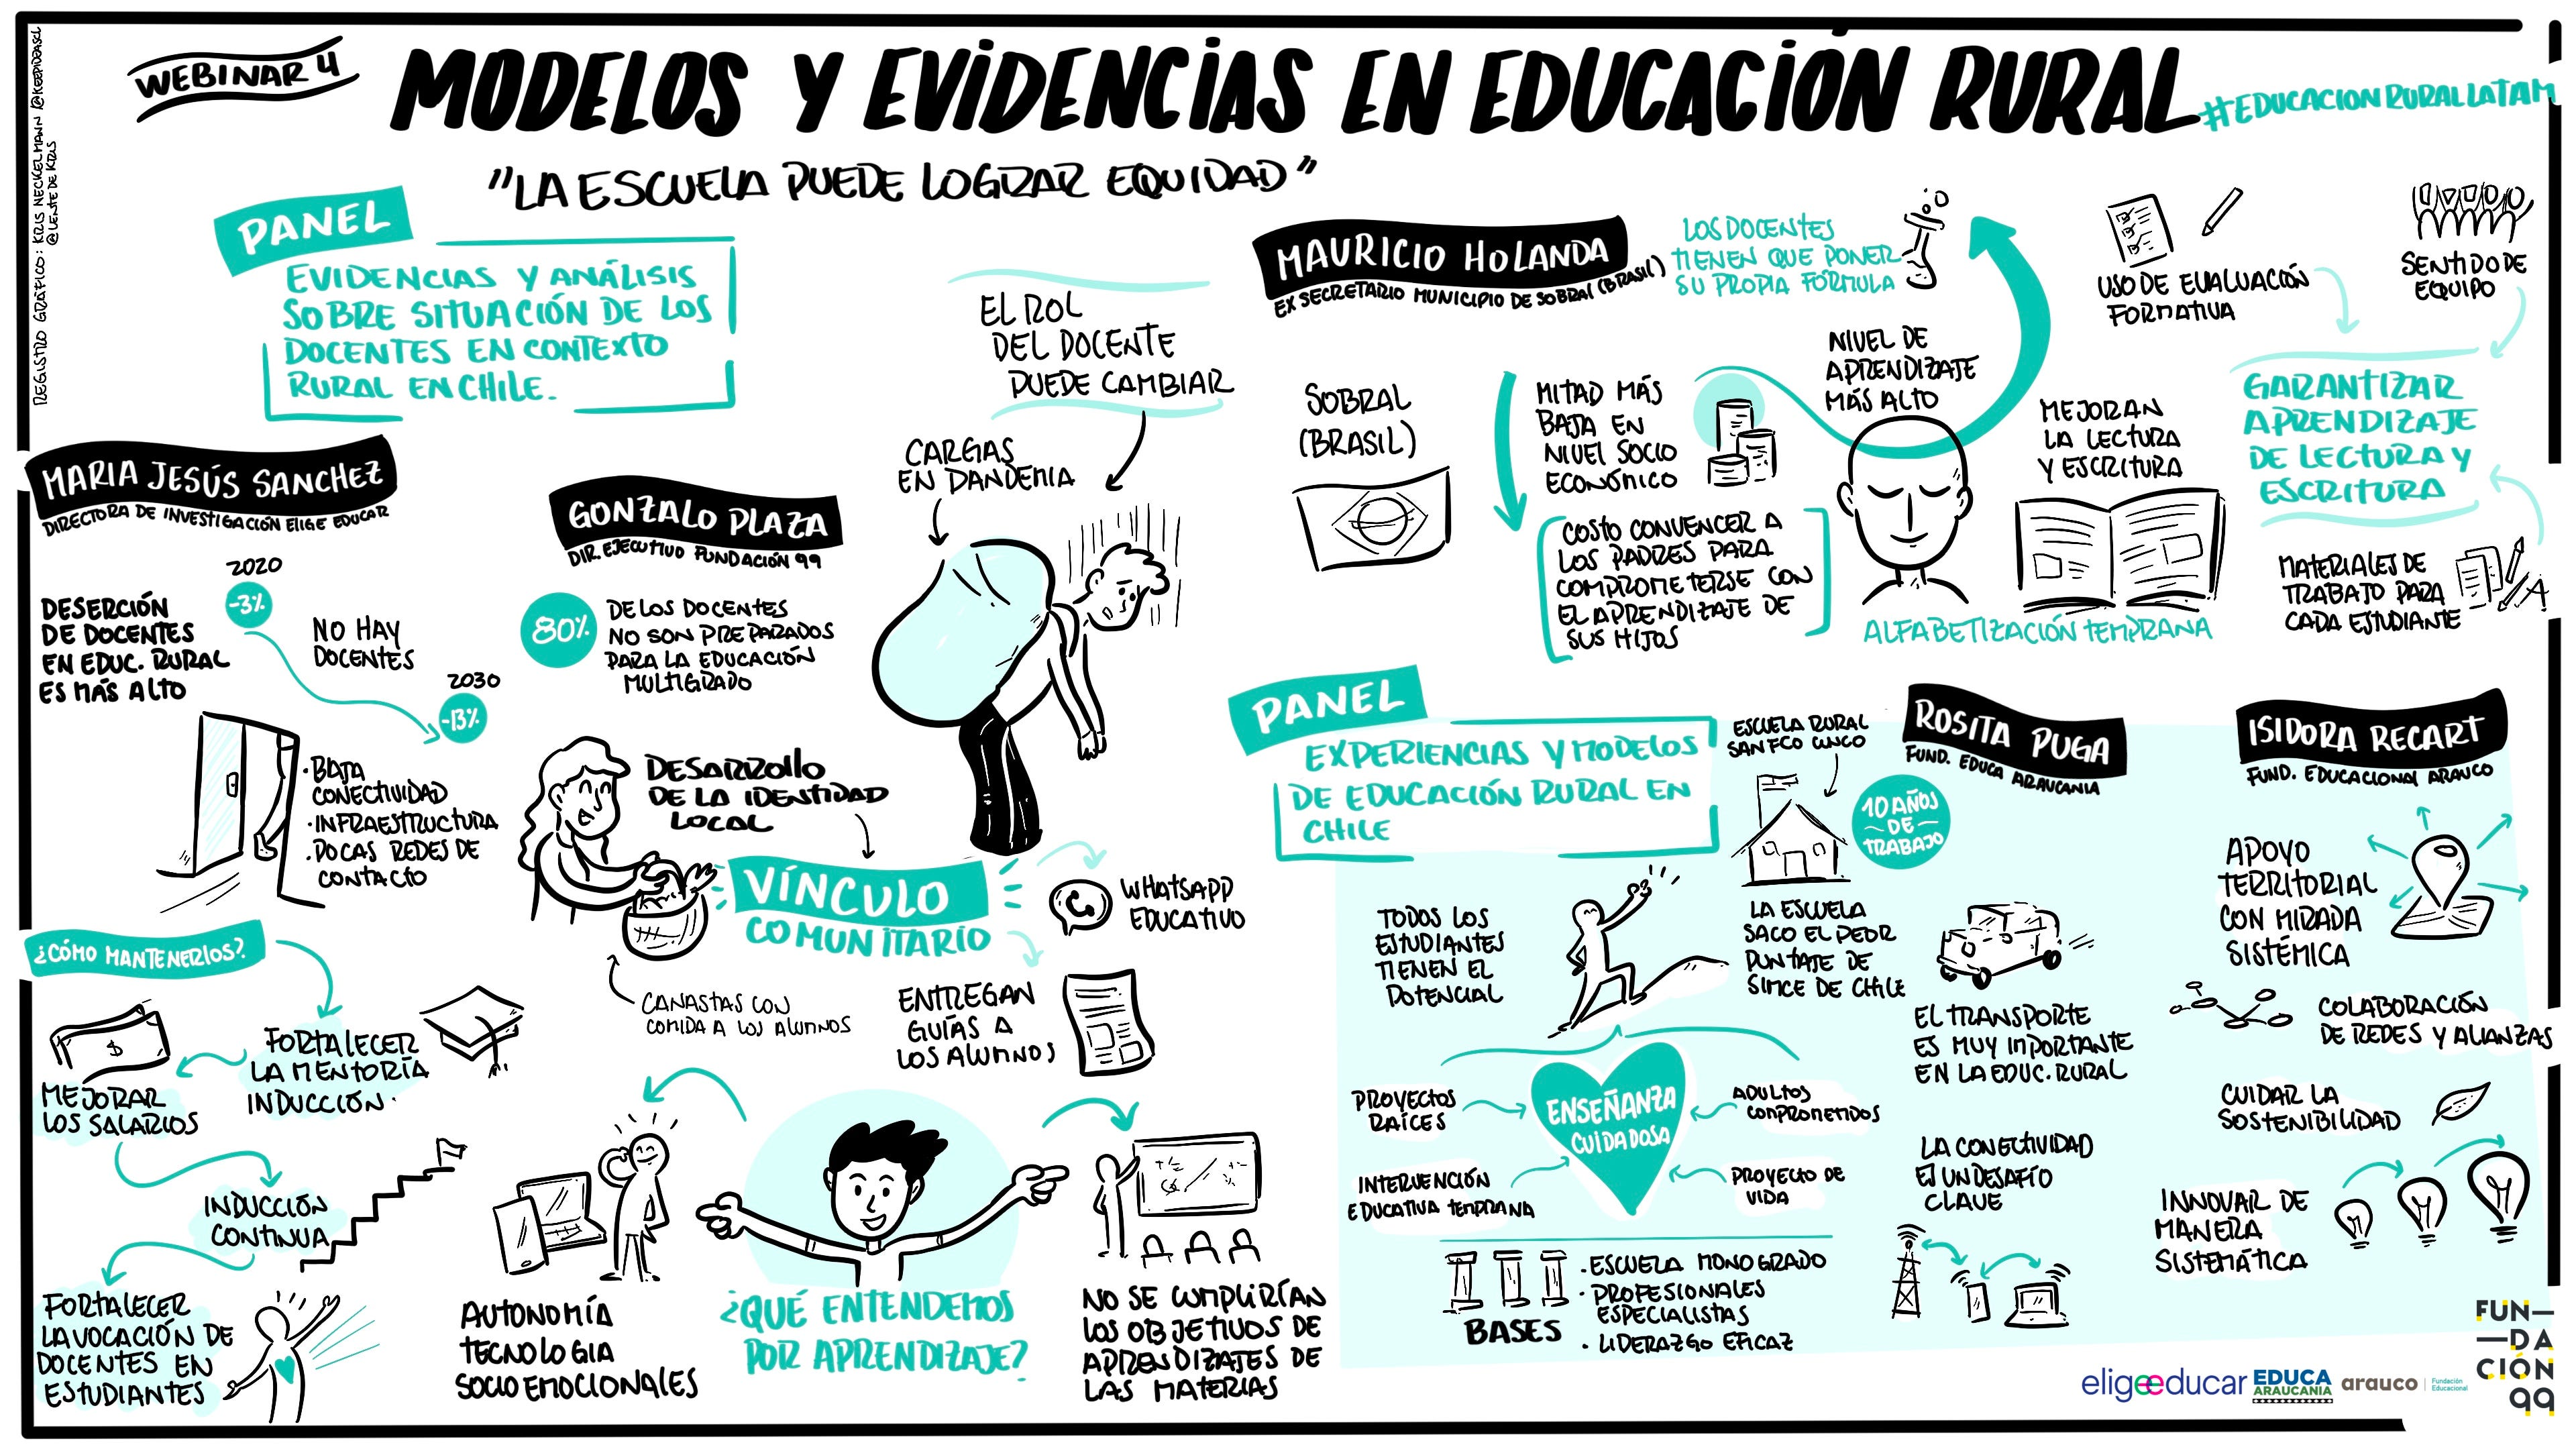 WEBINAR 4
MODELOS Y EVIDENCIAS EN EDUCACIÓN RURAL
#EDUCACIONRURALLATAM
"LA ESCUELA PUEDE LOGRAR EQUIDAD"
REGISTRO GRÁFICO: KRIS NECKELMANN @KEEPIDEASCL
@LENTE DE KRIS
PANEL
EVIDENCIAS Y ANÁLISIS
SOBRE SITUACIÓN DE LOS
DOCENTES EN CONTEXTO
RURAL EN CHILE.
MARIA JESÚS SANCHEZ
DIRECTORA DE INVESTIGACIÓN ELIGE EDUCAR
DESERCIÓN
DE DOCENTES
EN EDUC. RURAL
ES MÁS ALTO
2020
-3%
NO HAY
DOCENTES
2030
-13%
• BAJA
CONECTIVIDAD
• INFRAESTRUCTURA
• POCAS REDES DE
CONTACTO
¿CÓMO MANTENERLOS?
FORTALECER
LA MENTORÍA
INDUCCIÓN.
$
MEJORAR
LOS SALARIOS
INDUCCIÓN
CONTINUA
FORTALECER
LA VOCACIÓN DE
DOCENTES EN
ESTUDIANTES
GONZALO PLAZA
DIR. EJECUTIVO FUNDACIÓN 99
80%
DE LOS DOCENTES
NO SON PREPARADOS
PARA LA EDUCACIÓN
MULTIGRADO
EL ROL
DEL DOCENTE
PUEDE CAMBIAR
CARGAS
EN PANDEMIA
DESARROLLO
DE LA IDENTIDAD
LOCAL
VÍNCULO
COMUNITARIO
WHATSAPP
EDUCATIVO
CANASTAS CON
COMIDA A LOS ALUMNOS
ENTREGAN
GUÍAS A
LOS ALUMNOS
AUTONOMÍA
TECNOLOGIA
SOCIOEMOCIONALES
¿QUÉ ENTENDEMOS
POR APRENDIZAJE?
NO SE CUMPLIRÍAN
LOS OBJETIVOS DE
APRENDIZAJES DE
LAS MATERIAS
MAURICIO HOLANDA
EX SECRETARIO MUNICIPIO DE SOBRAL (BRASIL)
LOS DOCENTES
TIENEN QUE PONER
SU PROPIA FÓRMULA
SOBRAL
(BRASIL)
MITAD MÁS
BAJA EN
NIVEL SOCIO
ECONÓMICO
COSTO CONVENCER A
LOS PADRES PARA
COMPROMETERSE CON
EL APRENDIZAJE DE
SUS HIJOS
NIVEL DE
APRENDIZAJE
MÁS ALTO
MEJORAN
LA LECTURA
Y ESCRITURA
ALFABETIZACIÓN TEMPRANA
USO DE EVALUACIÓN
FORMATIVA
SENTIDO DE
EQUIPO
GARANTIZAR
APRENDIZAJE
DE LECTURA Y
ESCRITURA
MATERIALES DE
TRABAJO PARA
CADA ESTUDIANTE
PANEL
EXPERIENCIAS Y MODELOS
DE EDUCACIÓN RURAL EN
CHILE
ESCUELA RURAL
SAN FCO CUNCO
ROSITA PUGA
FUND. EDUCA ARAUCANIA
10 AÑOS
DE
TRABAJO
TODOS LOS
ESTUDIANTES
TIENEN EL
POTENCIAL
LA ESCUELA
SACO EL PEOR
PUNTAJE DE
SIMCE DE CHILE
EL TRANSPORTE
ES MUY IMPORTANTE
EN LA EDUC. RURAL
PROYECTOS
RAÍCES
ENSEÑANZA
CUIDADOSA
ADULTOS
COMPROMETIDOS
INTERVENCIÓN
EDUCATIVA TEMPRANA
PROYECTO DE
VIDA
LA CONECTIVIDAD
ES UN DESAFÍO
CLAVE
BASES
• ESCUELA MONOGRADO
• PROFESIONALES
ESPECIALISTAS
• LIDERAZGO EFICAZ
ISIDORA RECART
FUND. EDUCACIONAL ARAUCO
APOYO
TERRITORIAL
CON MIRADA
SISTÉMICA
COLABORACIÓN
DE REDES Y ALIANZAS
CUIDAR LA
SOSTENIBILIDAD
INNOVAR DE
MANERA
SISTEMÁTICA
eligeeducar
EDUCA
ARAUCANÍA
arauco
Fundación
Educacional
FUN—
—DA
CIÓN
99